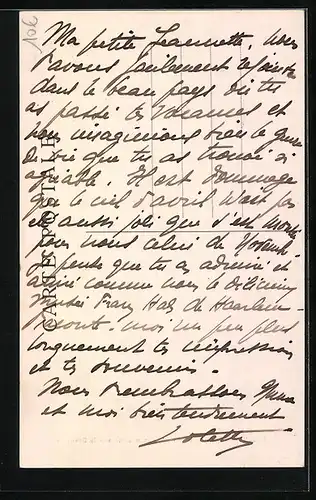 10€
CARTE POSTALE
Ma petite Jeannette, nous
t'avons facilement rejointe
dans le beau pays où tu
as passé tes vacances et
nous imaginions bien le genre
de vie que tu as trouvé si
agréable. Il est dommage
que le ciel d'avril n'ait pas
été aussi joli que s'est montré
pour nous celui de
Je pense que tu as admiré et
aimé comme nous le délicieux
Musée Franz Hals de Haarlem.
Raconte-moi un peu plus
longuement tes impressions
et tes souvenirs.
Nous t'embrassons
et moi bien tendrement
Colette